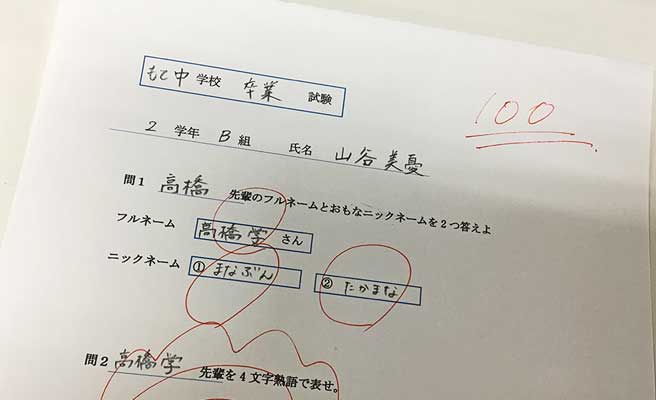 もて中 学校 卒業 試験
100
2 学年 B 組 氏名 山谷 美憂
問1 高橋 先輩のフルネームとおもなニックネームを2つ答えよ
フルネーム 高橋学 さん
ニックネーム ① まなぶん ② たかまな
問2 高橋学 先輩を4文字熟語で表せ。